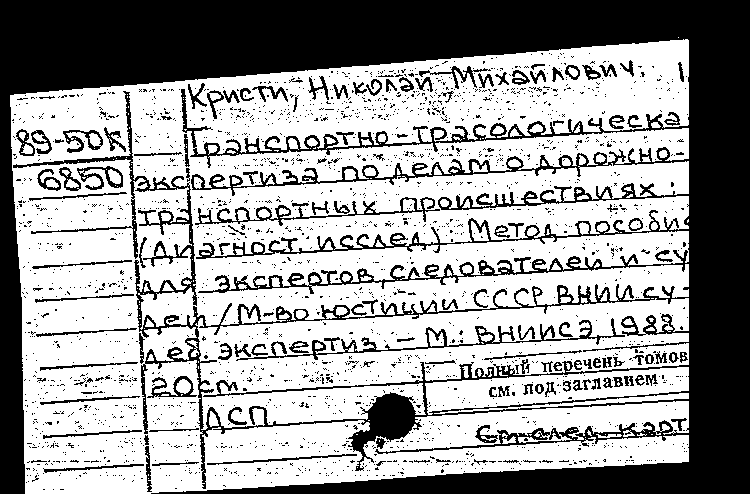 Кристи, Николай Михайлович. 1.
89-50К
6850
Транспортно-трасологическа
экспертиза по делам о дорожно-
транспортных происшествиях:
(Диагност. исслед.). Метод. пособие
для экспертов, следователей и су
дей / М-во юстиции СССР, ВНИИ су-
деб. экспертиз. – М.: ВНИИСЭ, 1988.
20 см.
Полный перечень томов
см. под заглавием
ДСП.
См. след. карт.